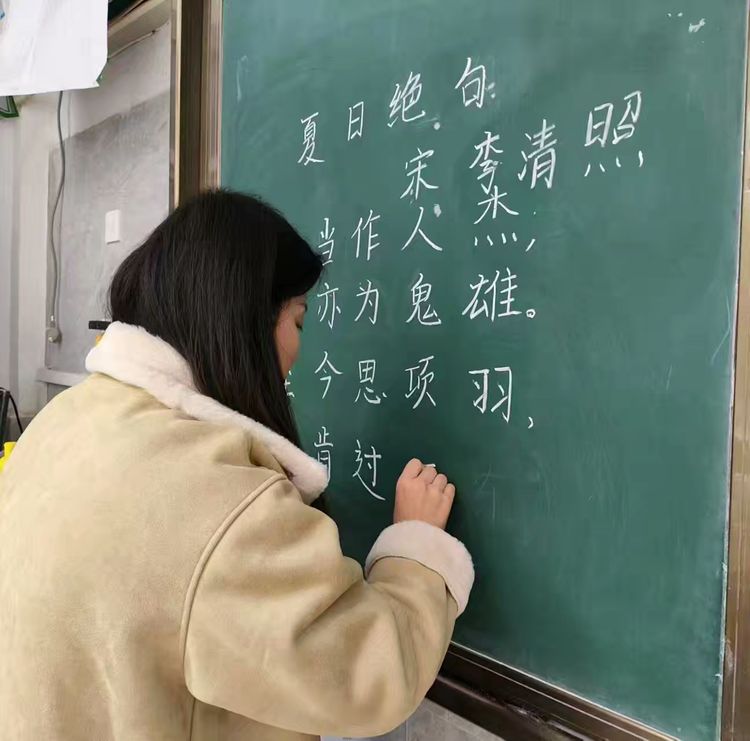 夏日绝句
宋 李清照
当作人杰,
亦为鬼雄。
今思项羽,
肯过